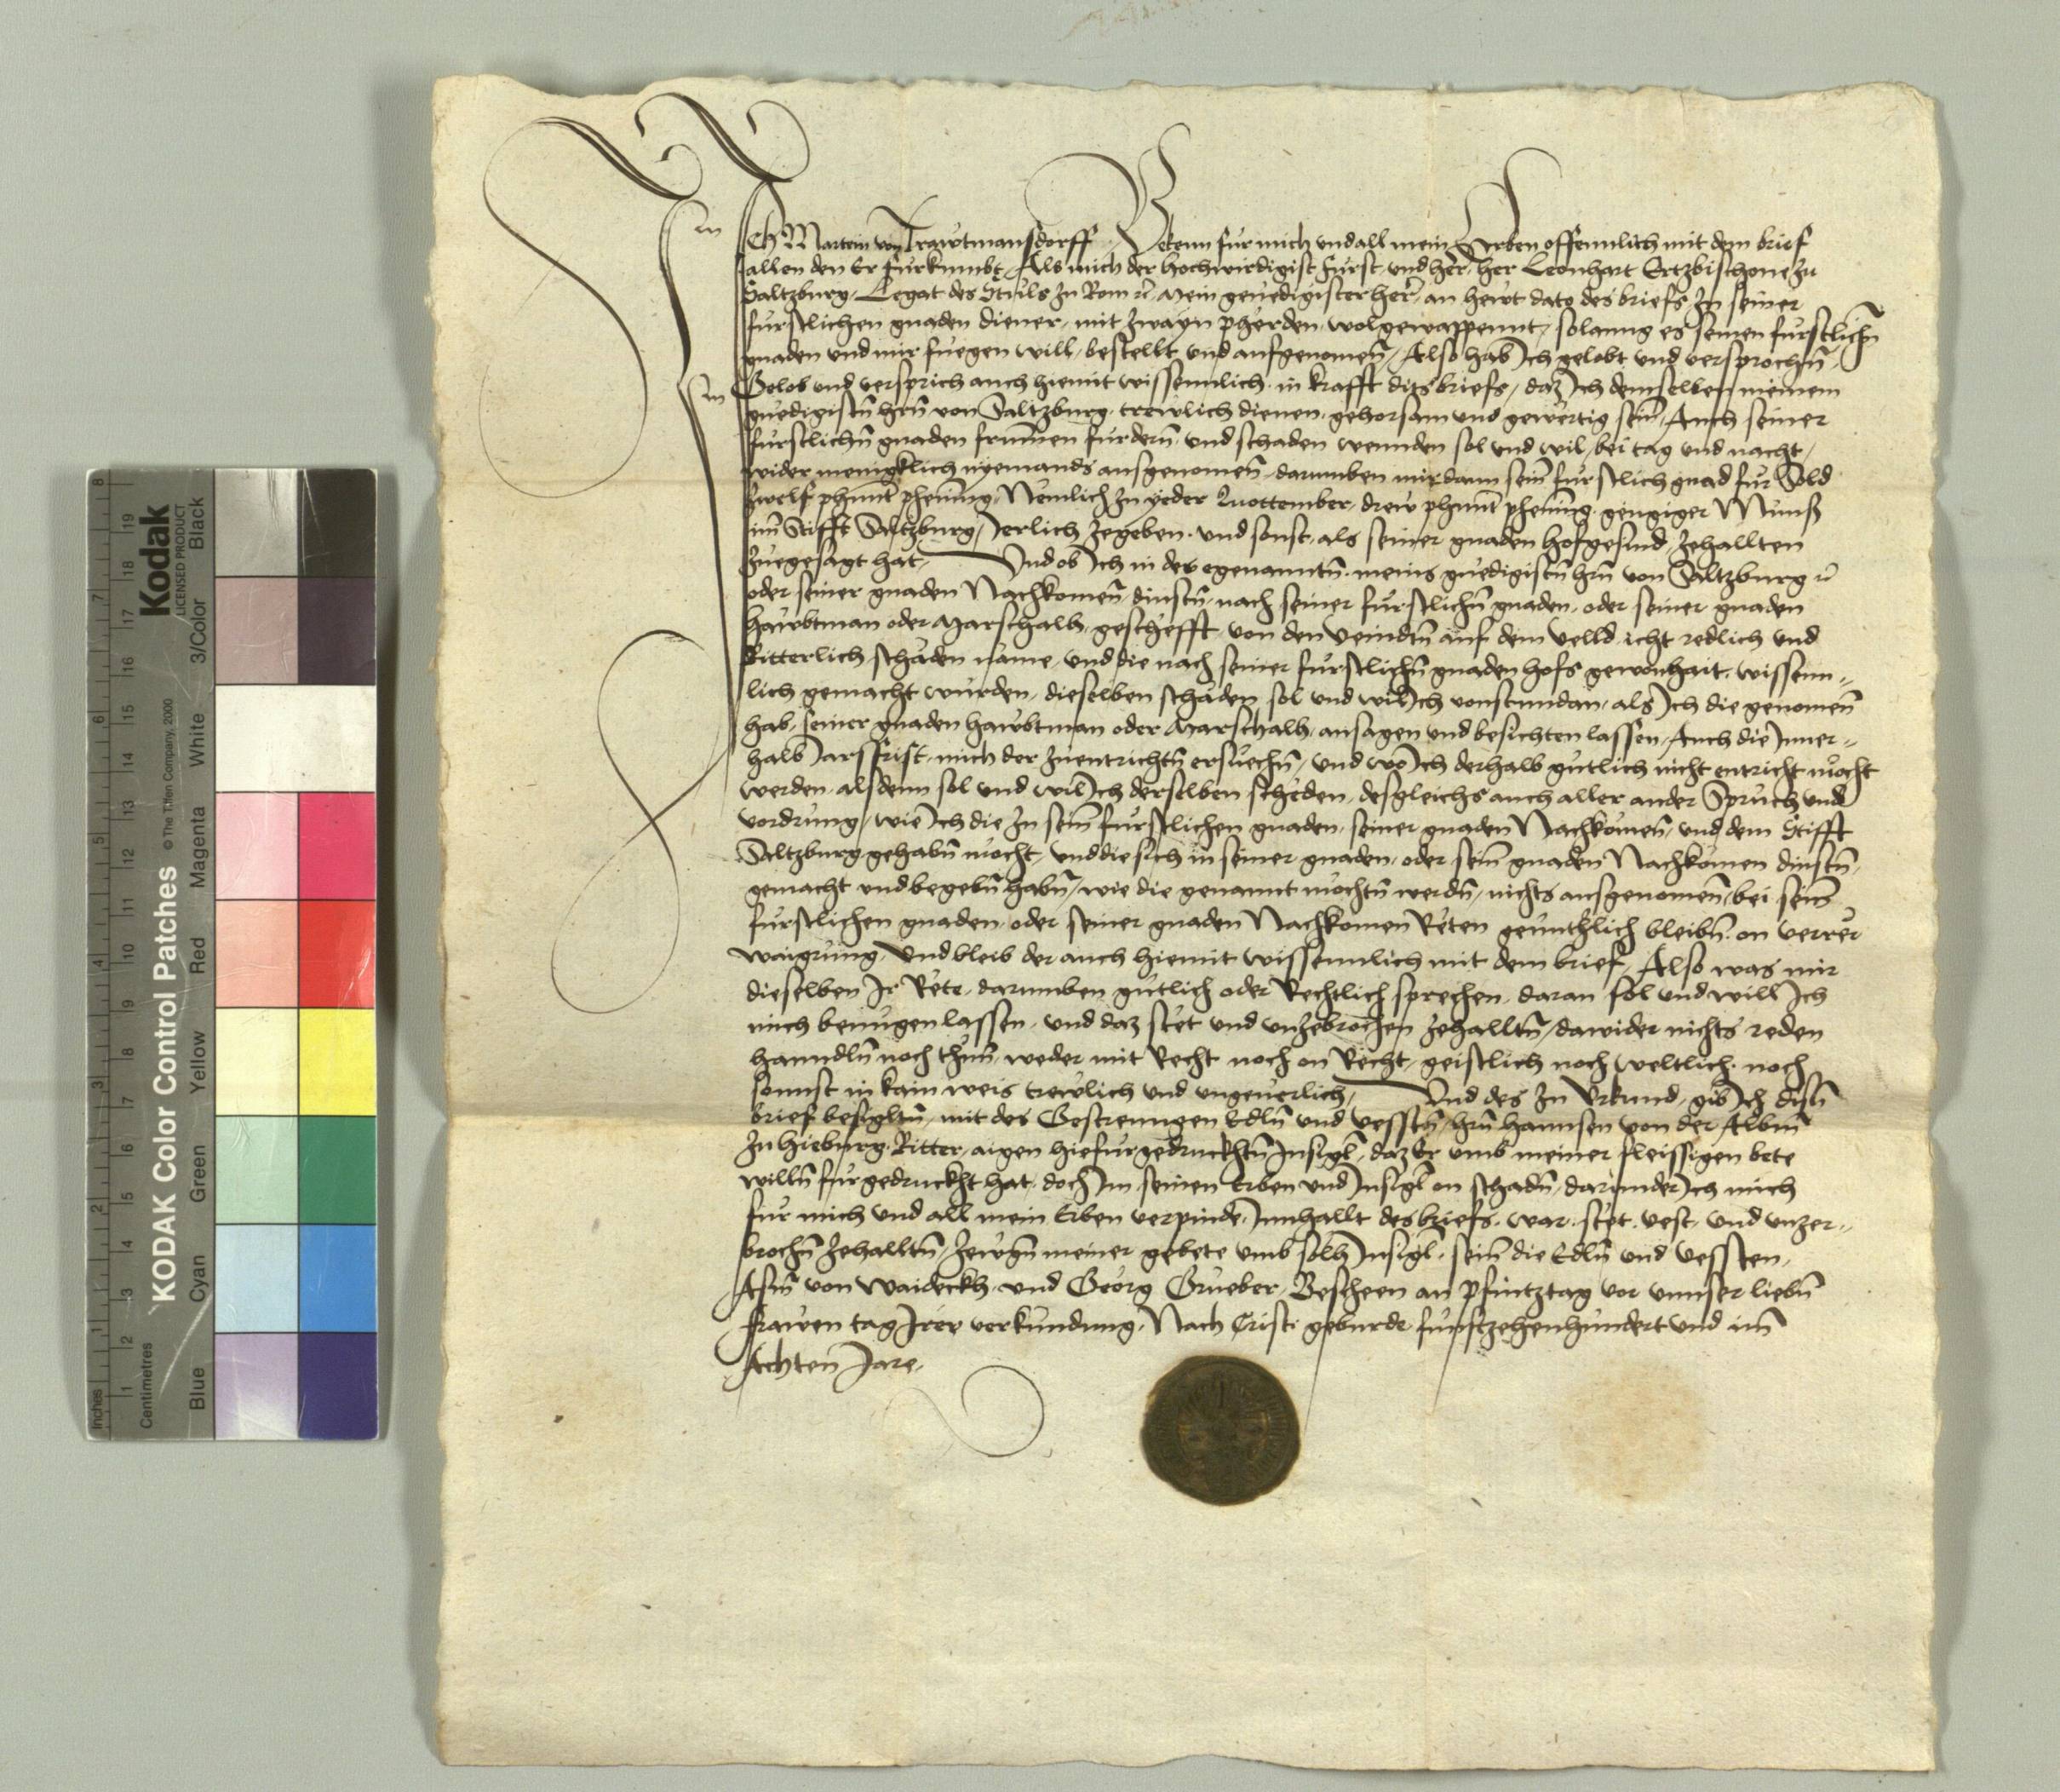 Ich Martein von Trawtmansdorff Bekenn für mich und all mein Erben offennlich mit dem brief
allen den Er fürkumbt, Als mich der hochwirdigist Fürst und her, her Leonhart Ertzbischoue zu
Saltzburg, Legat des Stuls zu Rom rc, Mein genedigister her, an hewt dato des briefs zu seiner
fürstlichen gnaden diener, mit zwayn pherden, wolgewappennt, solanng es seinen fürstlichn
gnaden und mir fuegen will, bestellt und aufgenomen, Also hab Ich gelobt und versprochn,
Gelob und versprich auch hiemit wissennlich in krafft dits briefs, daz Ich demselben meinem
genedigistn hrn von Saltzburg, trewlich dienen, gehorsam und gewertig sein, Auch seiner
fürstlichn gnaden frumen fürdern und schaden wennden sol und wil, bei tag und nacht,
wider menigklich nyemands ausgenomen, darumben mir dann sein fürstlich gnad für Sold
zwelf phunt phening, Nemlich zu yeder Quottember, drew phunt phening genngiger Munß
im Stifft Saltzburg, Jerlich zegeben, und sonst als seiner gnaden hofgesind, zehallten
zuegesagt hat, Und ob Ich in des egenanntn meins genedigistn hrn von Saltzburg rc
oder seiner gnaden Nachkomen, dinstn, nach seiner fürstlichn gnaden, oder seiner gnaden
hawbtman oder Marschalh, geschefft von den veindtn auf dem velld icht redlich und
Ritterlich schaden name, und die nach seiner fürstlichn gnaden hofs gewonhait, wissenn-
lich gemacht wurden, dieselben schaden sol und wil Ich vonstundan, als Ich die genomen
hab, seiner gnaden hawbtman oder Marschalh, ansagen und besichten lassen, Auch die Inner-
halb Jarsfrist, mich der zuentrichtn ersuechn, und wo Ich derhalb gütlich nicht entricht mocht
werden, alsdenn sol und wil Ich derselben scheden, desgleichs auch aller ander Sprüch und
vordrung, wie Ich die zu sein fürstlichen gnaden, seiner gnaden Nachkomen, und dem Stifft
Saltzburg gehabn mocht, und die sich in seiner gnaden, oder sein gnaden Nachkomen dinstn,
gemacht und begebn habn, wie die genannt mochtn werdn, nichts ausgenomen, bei seinr
fürstlichen gnaden, oder seiner gnaden Nachkomen Reten genntzlich bleibn on verrer
waigrung, Und bleib der auch hiemit wissennlich mit dem brief, Also was mir
dieselben Ir Rete, darumben gütlich oder Rechtlich sprechen, daran sol und will Ich
mich benügen lassen, und daz stet und unzebrochen zehalltn, dawider nichts reden
hanndln noch thun, weder mit Recht noch on Recht, geistlich noch weltlich, noch
sonnst in kain weis trewlich und ungeuerlich, Und des zu Urkund, gib Ich disn
brief besigltn, mit des Gestrenngen Edln und vesstn, hrn hannsen von der Albm
zu Hieburg Ritter, aigen hiefürgedruckhtn Insigl, daz Er umb meiner fleissigen bete
willn fürgedruckht hat, doch Im, seinen Erben und Insigl on schadn, darunder Ich mich
für mich und all mein Erben verpinde, Innhallt des briefs, war, stet, vest, und unzer-
brochn zehalltn, zewgn meiner gebete umb solh Insigl, sein die Edln und vessten,
Asm von Waideckh, und Georg Grueber, Bescheen an Pfintztag vor unnser liebn
frawen tag Irer verkundung, Nach Cristi geburde funfftzehenhundert und im
Achten Jare,
Kodak
LICENSED PRODUCT
KODAK Color Control Patches
© The Tiffen Company, 2000
Inches
Centimetres
Blue Cyan Green Yellow Red Magenta White 3/Color Black